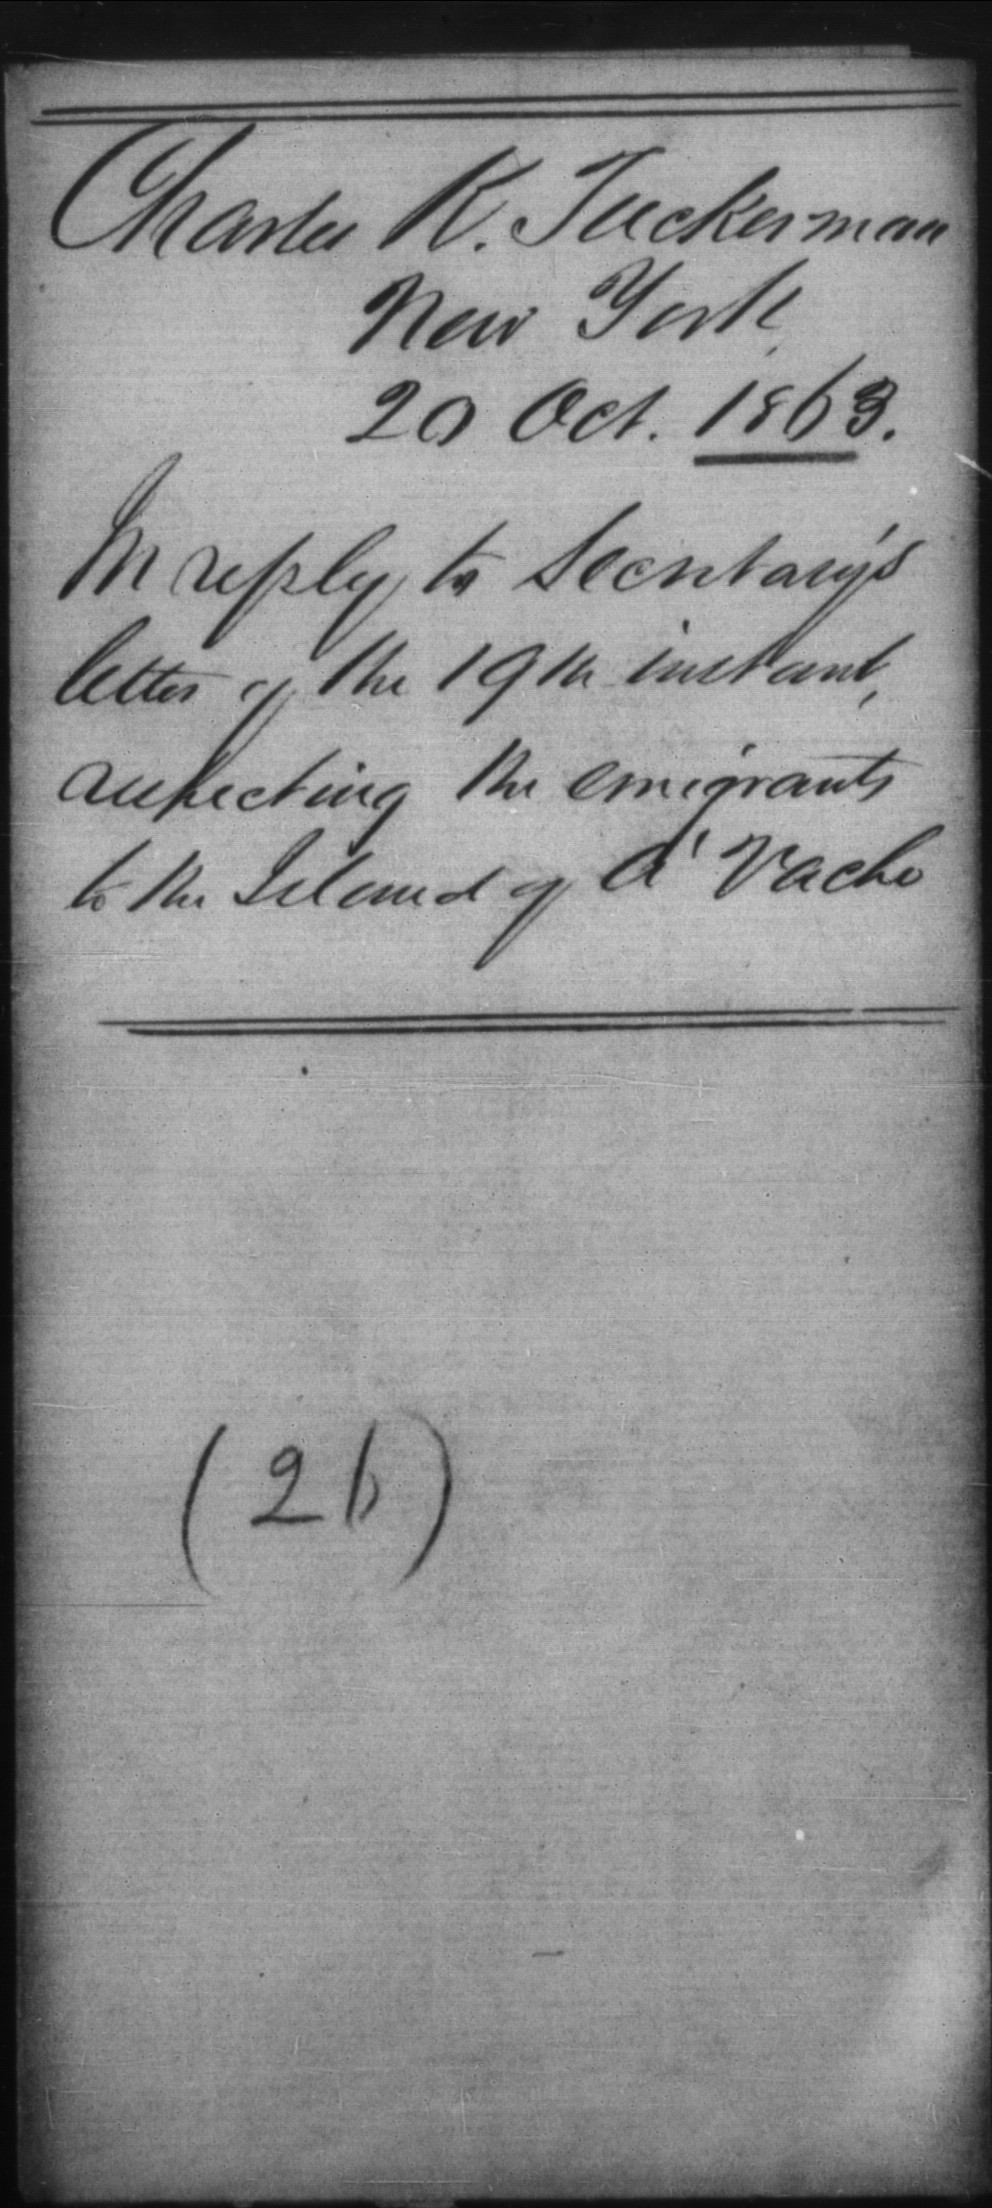 Charles K. Tuckerman
New York
20 Oct. 1863.
In reply to Secretary's
letter of the 19th instant,
respecting the emigrants
to the Island of A' Vache
(26)